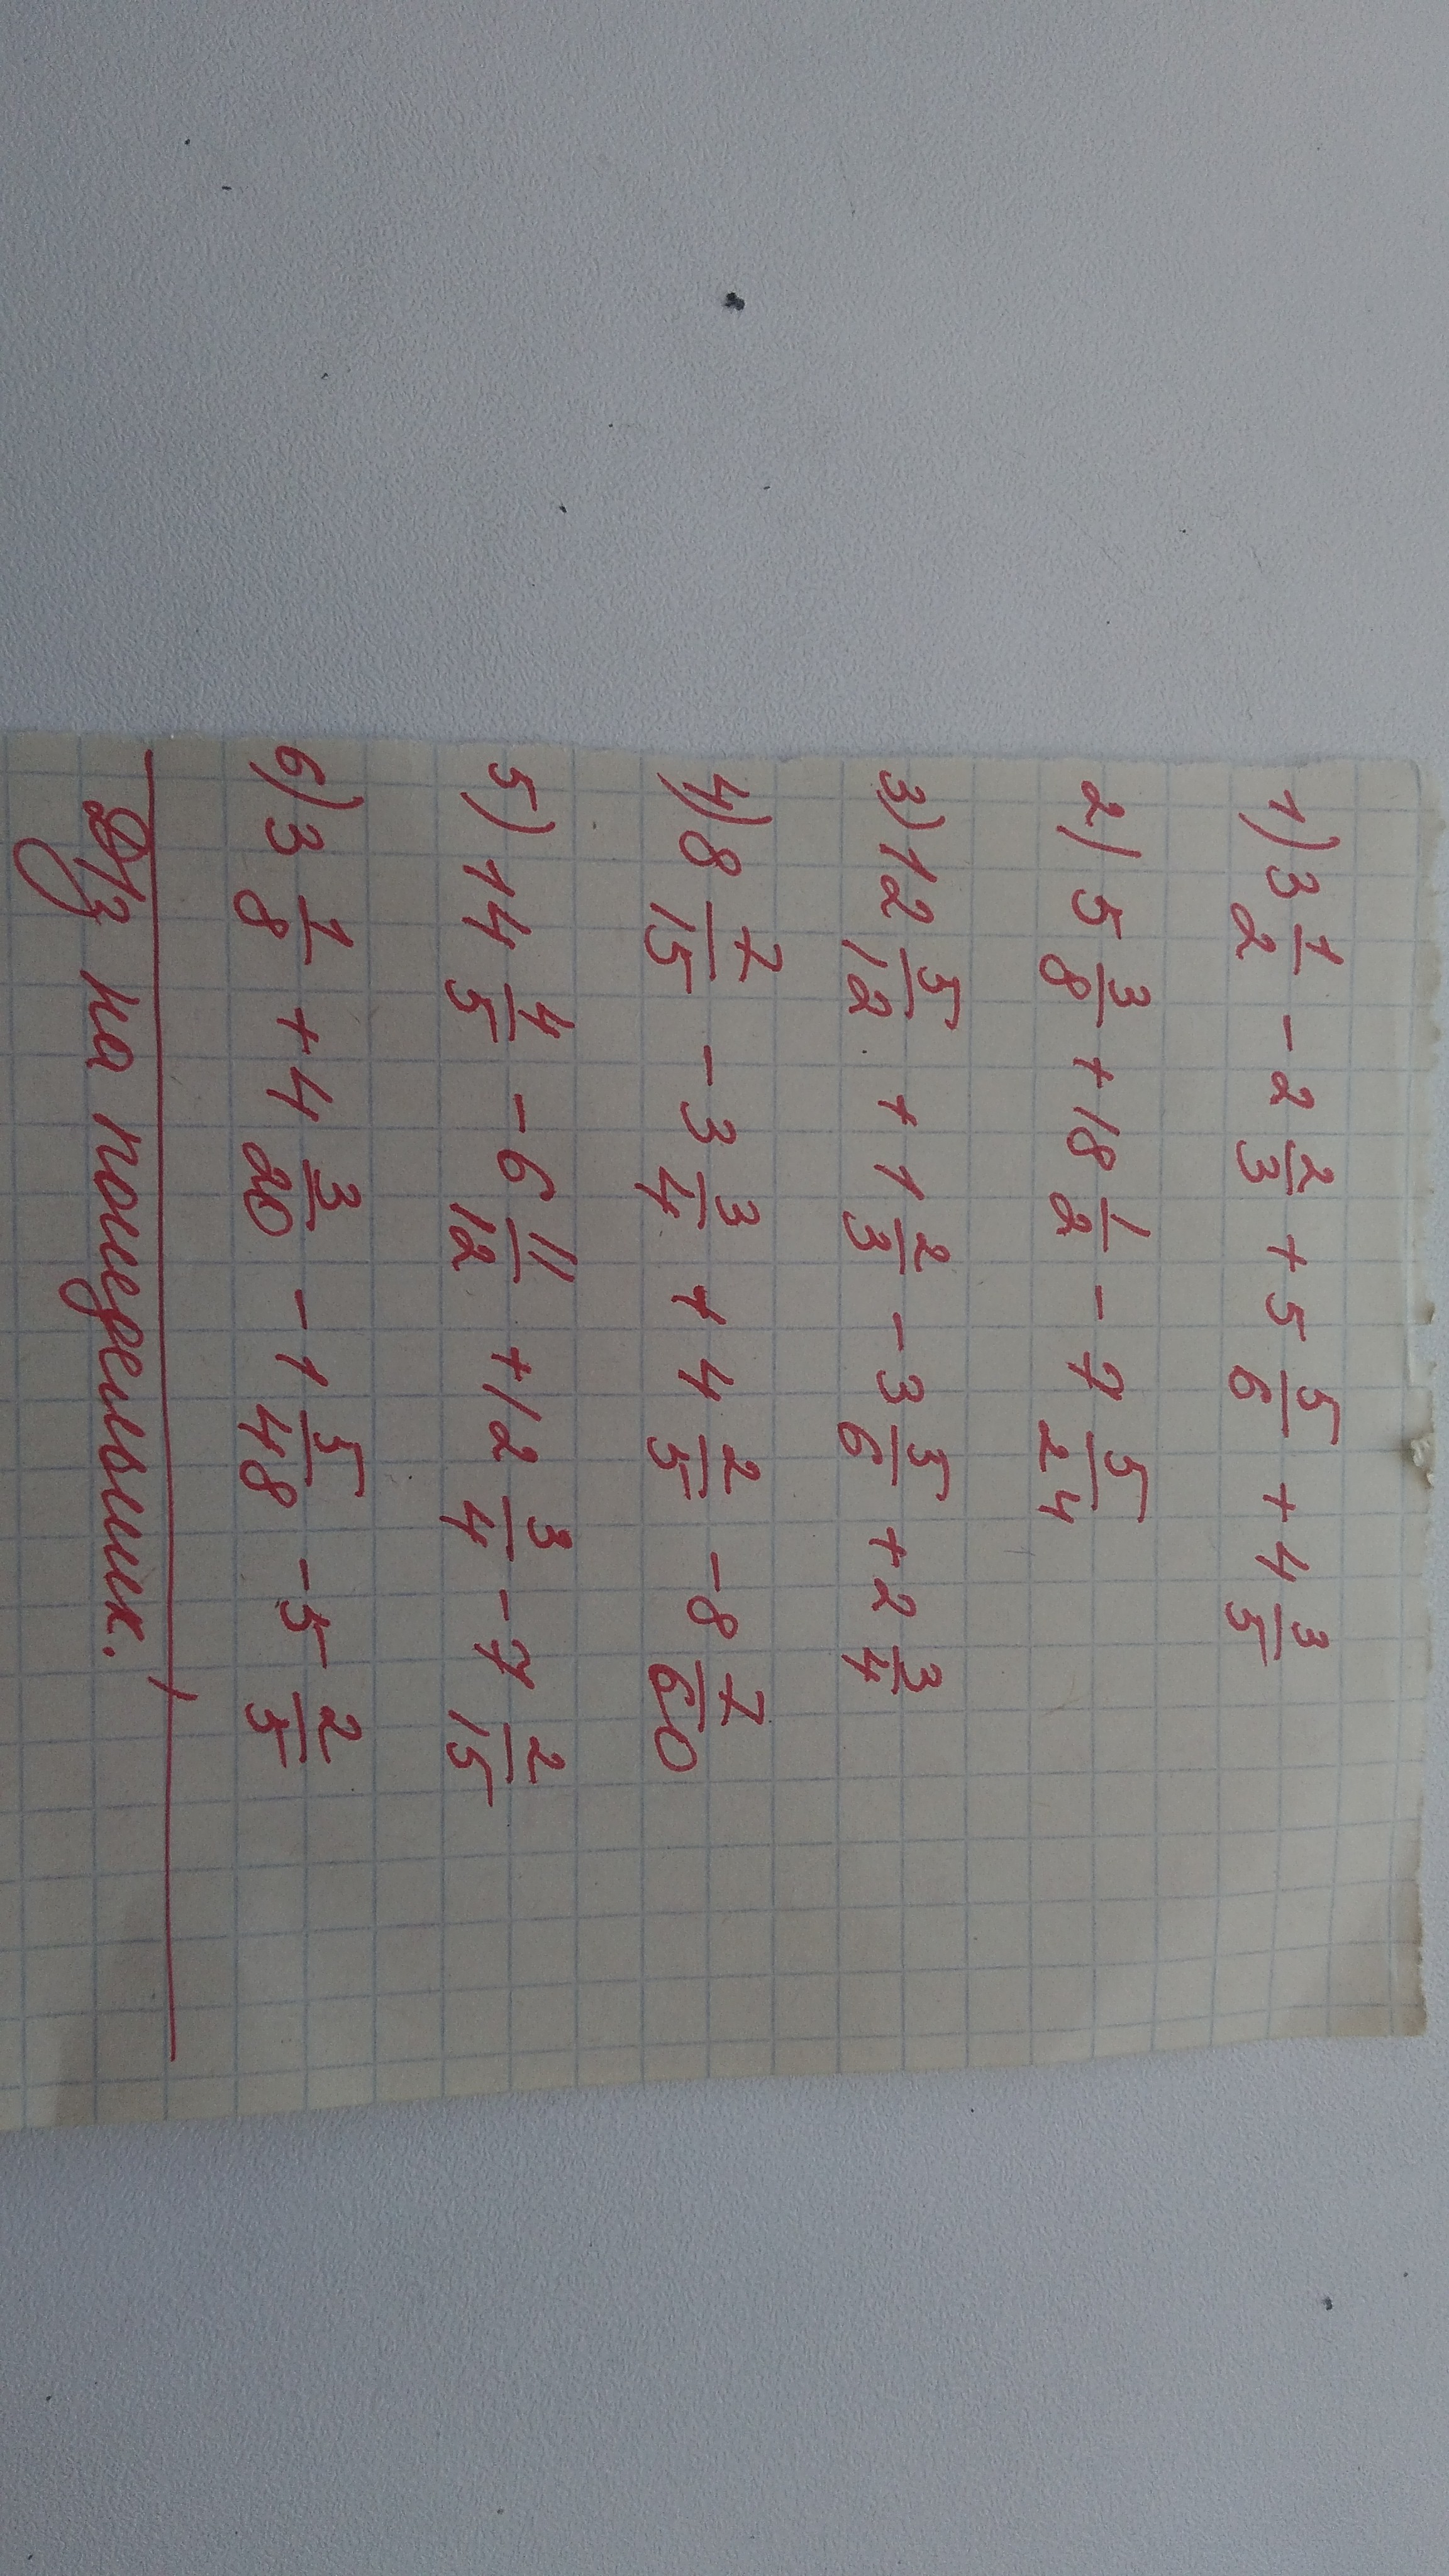 1) 3 1/2 - 2 2/3 + 5 5/6 + 4 3/5
2) 5 3/8 + 18 1/2 - 7 5/24
3) 12 5/12 + 1 2/3 - 3 5/6 + 2 3/4
4) 8 7/15 - 3 3/4 + 4 2/5 - 8 7/60
5) 14 4/5 - 6 11/12 + 12 3/4 - 7 2/15
6) 3 1/8 + 4 3/20 - 1 5/48 - 5 2/5
Д/з на понедельник.